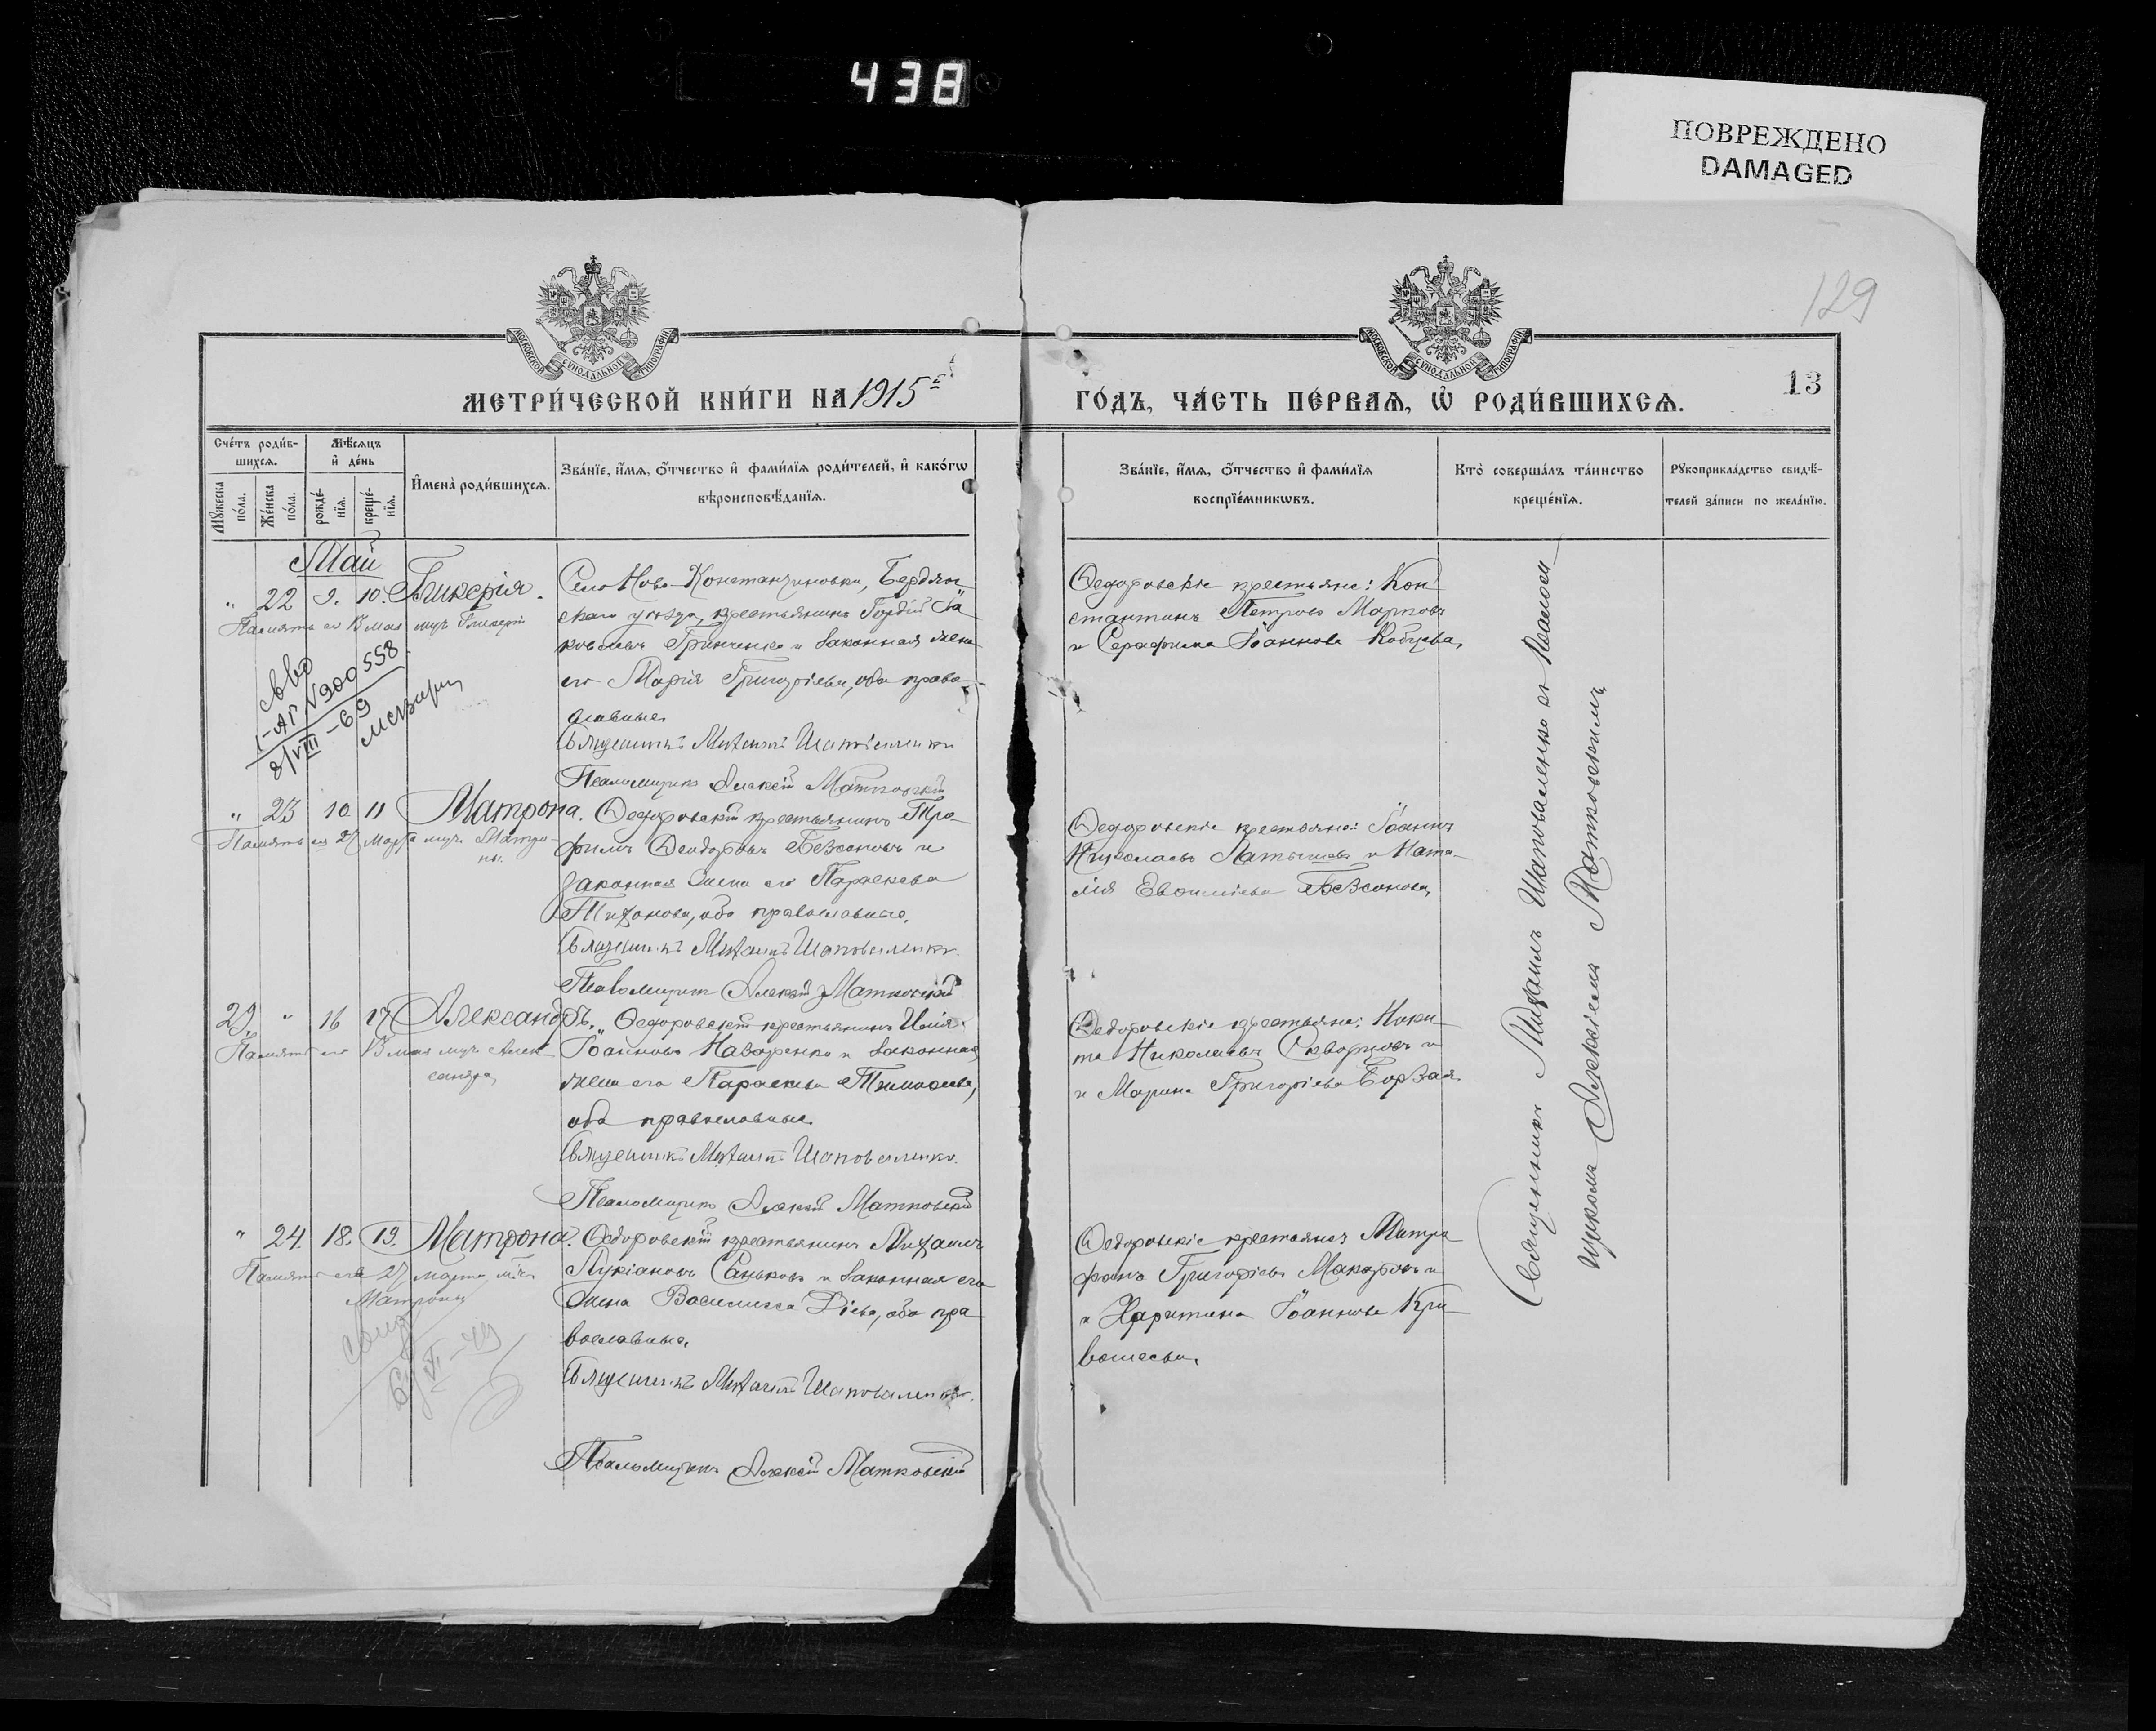 438
ПОВРЕЖДЕНО
DAMAGED
129
МОСКОВСКОЙ СУНОДАЛЬНОЙ ТИПОГРАФІИ
МОСКОВСКОЙ СУНОДАЛЬНОЙ ТИПОГРАФІИ
МЕТРИ́ЧЕСКОЙ КНИ́ГИ НА 1915 г.
ГО́ДЪ, ЧА́СТЬ ПЕ́РВАѦ, Ѡ҆ РОДИ́ВШИХСѦ.
13
Сче́тъ роди́в-
шихсѧ.
Мѣ́сяцъ
и҆ де́нь
Мꙋ́жеска
по́ла.
Же́нска
по́ла.
рожде́-
нїѧ.
креще́-
нїѧ.
И҆мена̀ роди́вшихсѧ.
Зва́нїе, и҆́мѧ, ѻ҆́тчество и҆ фами́лїѧ роди́телей, и҆ како́гѡ
вѣроисповѣ́данїѧ.
Зва́нїе, и҆́мѧ, ѻ҆́тчество и҆ фами́лїѧ
воспрїе́мникѡвъ.
Кто̀ соверша́лъ та́инство
креще́нїѧ.
Рꙋкоприкла́дство свидѣ́-
телей за́писи по жела́нїю.
Май
" 22 9. 10. Гликерія.
Память ея 13 мая муч. Гликеріи
Село Ново-Константиновки, Бердян-
скаго уѣзда, крестьянинъ Гордій Іа-
ковлевъ Гринченко и законная жена
его Марія Григорьева, оба право-
славные.
Священникъ Михаилъ Шаповаленко
Псаломщикъ Алексѣй Матковскій
Ѳедоровскіе крестьяне: Кон
стантинъ Петровъ Марковъ
и Серафима Іоаннова Кобцева.
" 23 10 11 Матрона.
Память ея 27 марта муч. Матро-
ны.
Ѳедоровскій крестьянинъ Тро
фимъ Ѳеодоровъ Безсоновъ и
законная жена его Параскева
Тихонова, оба православные.
Священникъ Михаилъ Шаповаленко.
Псаломщикъ Алексѣй Матковскій
Ѳедоровскіе крестьяне: Іоаннъ
Николаевъ Латышевъ и Ната-
лія Евѳиміева Безсонова.
29. " 16 17 Александръ.
Память его 13 мая муч. Алек-
сандра.
Ѳедоровскій крестьянинъ Илія
Іоанновъ Назаренко и законная
жена его Параскева Тимоѳеева,
оба православные.
Священникъ Михаилъ Шаповаленко.
Псаломщикъ Алексѣй Матковскій
Ѳедоровскіе крестьяне: Ники-
та Николаевъ Скворцовъ и
и Марина Григоріева Борзая.
" 24. 18. 19. Матрона.
Память ея 27 марта м-цы
Матроны
Ѳедоровскій крестьянинъ Михаилъ
Лукіановъ Саньковъ и законная его
жена Василисса Діева, оба пра
вославные.
Священникъ Михаилъ Шаповаленко.
Псаломщикъ Алексѣй Матковскій
Ѳедоровскіе крестьяне: Митро
фанъ Григоріевъ Макаровъ и
и Харитина Іоаннова Кри
вошеева.
Священникъ Михаилъ Шаповаленко съ Псалом-
щикомъ Алексіемъ Матковскимъ.